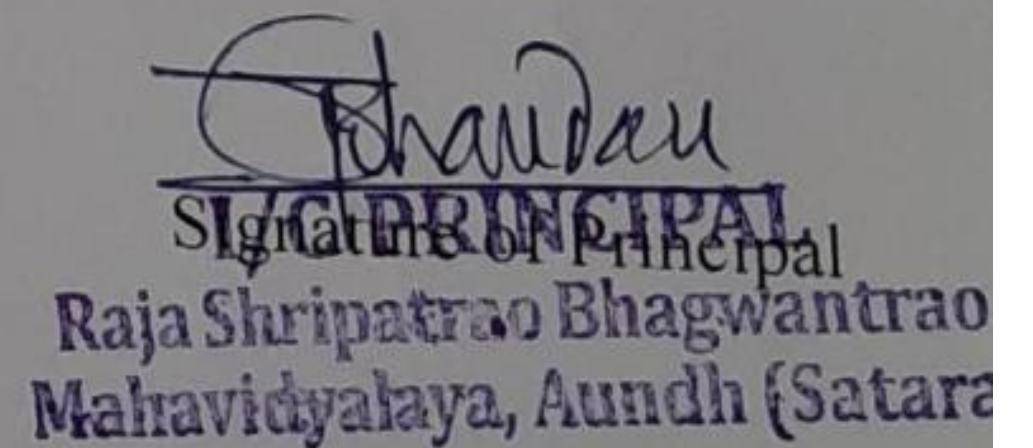 I/C PRINCIPAL
Signature of Principal
Raja Shripatrao Bhagwantrao
Mahavidyalaya, Aundh (Satara